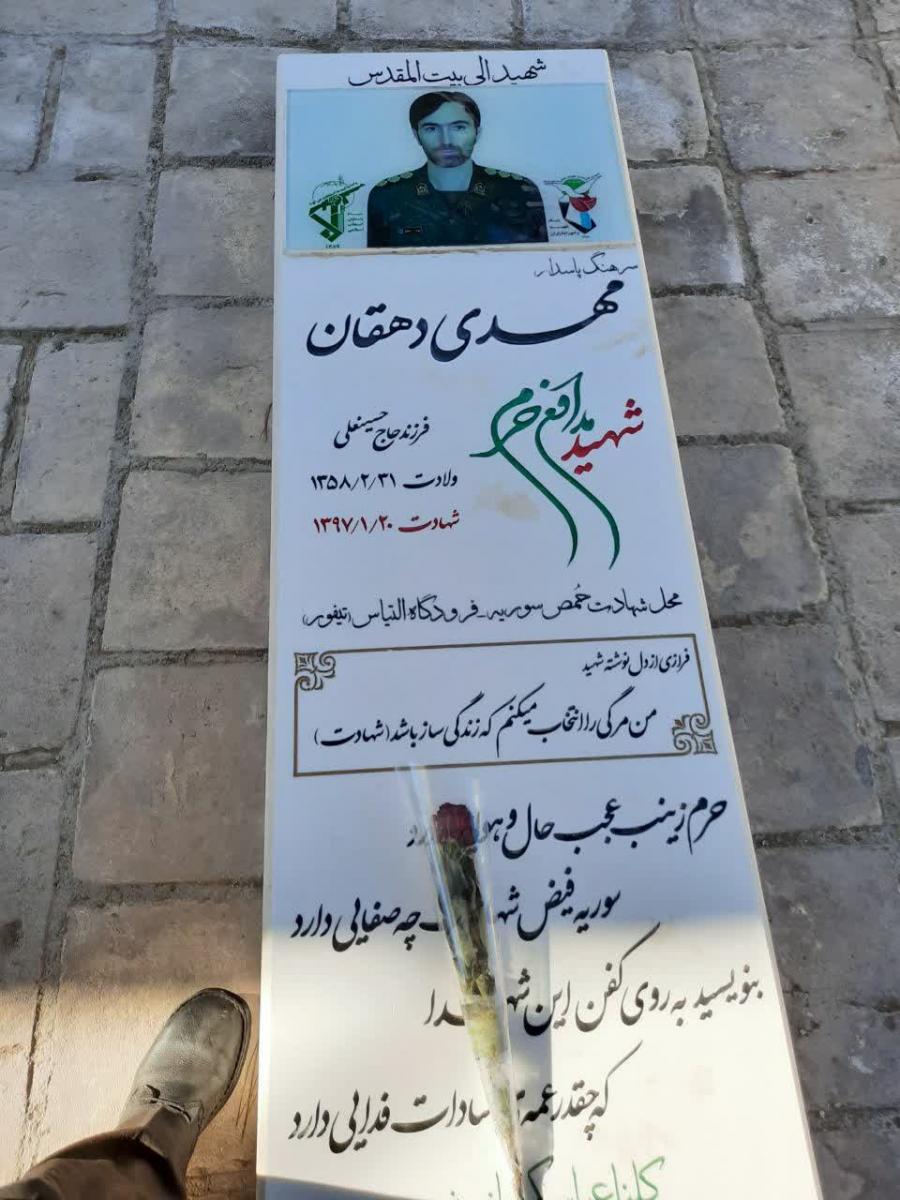 شهید الی بیت المقدس
سرهنگ پاسدار
مهدی دهقان
شهید مدافع حرم
فرزند حاج حسینعلی
ولادت ۱۳۵۸/۲/۳۱
شهادت ۱۳۹۷/۱/۲۰
محل شهادت حُمص سوریه - فرودگاه التیاس (تیفور)
فرازی از دل نوشته شهید
من مرگی را انتخاب میکنم که زندگی ساز باشد (شهادت)
حرم زینب عجب حال و
سوریه فیض چه صفایی دارد
بنویسید به روی کفن این
که چقدر عمه سادات فدایی دارد